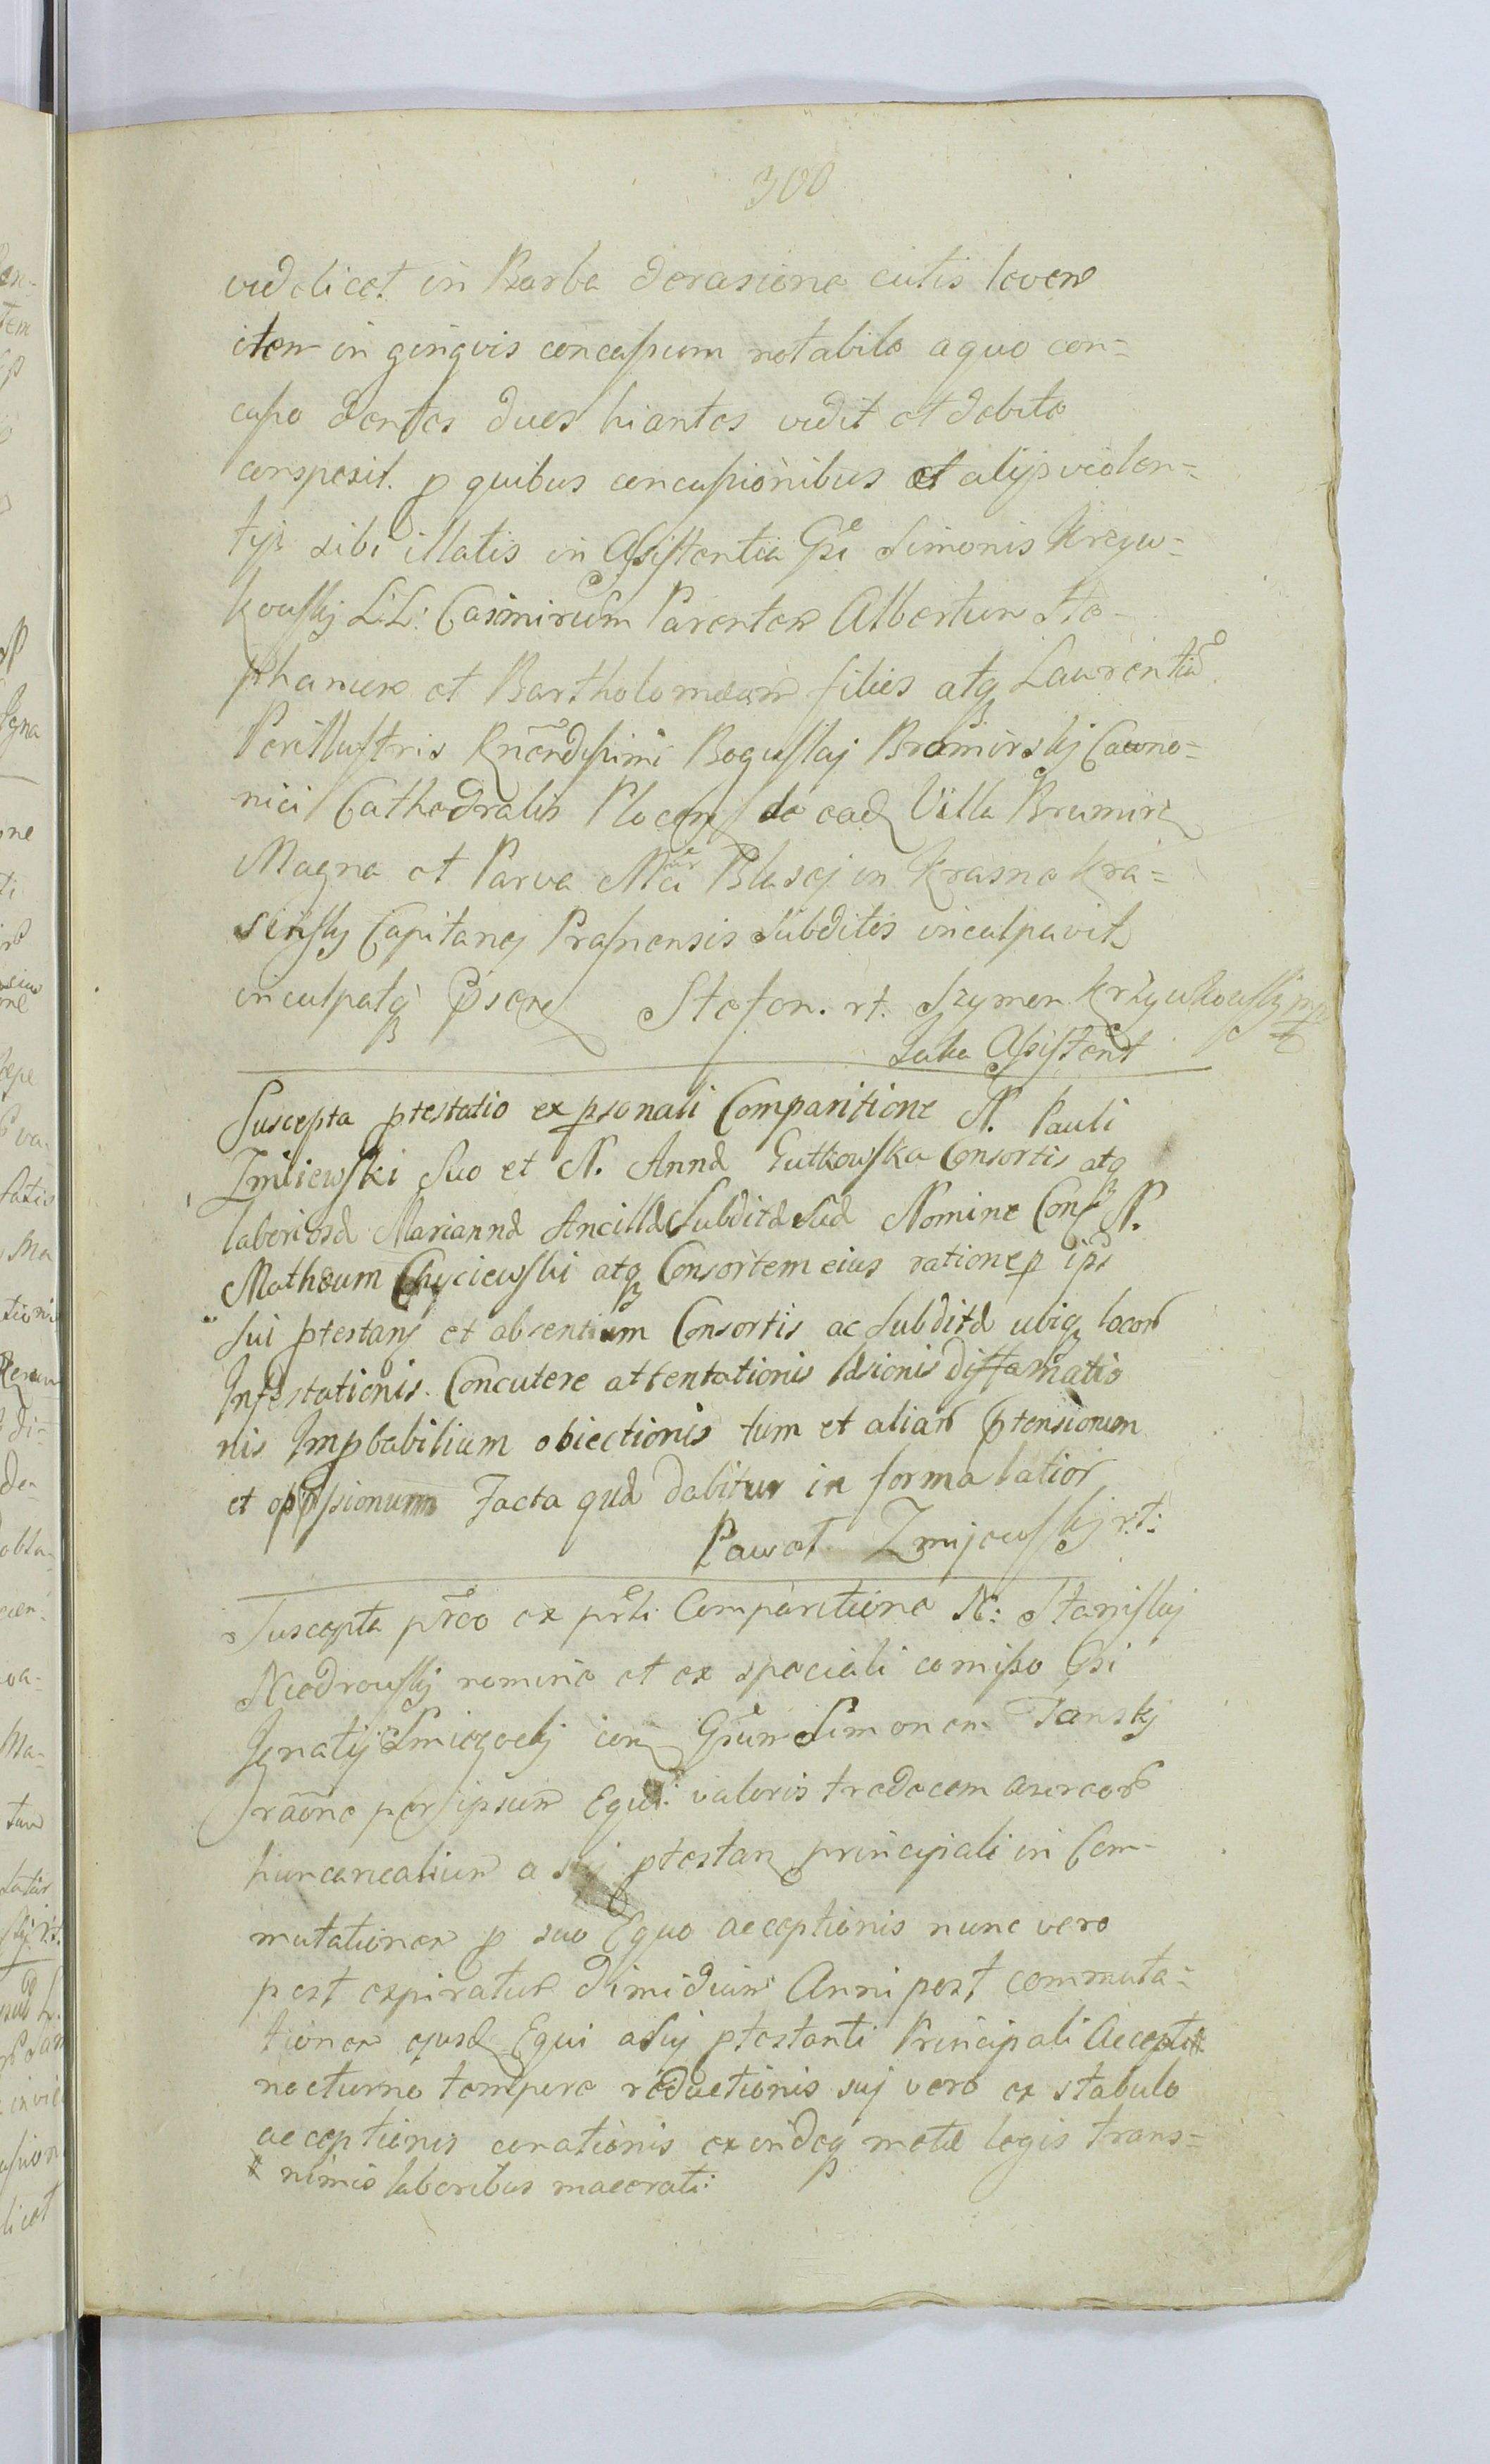 300
videlicet in Barba derasione cutis levem
item in gingvis concussum notabile a quo con=
cusso dentes duos hiantes vidit et debite
conspexit. p quibus concussionibus et alijs violen=
tijs sibi illatis in Assistentia Gsi Simonis Krzyw=
kowskij L:L: Casimirum Parentem Albertum Ste-
phanum et Bartholomæum filios atq Laurentiū
Perillustris Rnēndissimi Boguslaj Bromirskij Cano=
nici Cathedralis Plocen de ead Villa Bromirz
Magna et Parva Mci Blasej in Krasne Kra=
sinskj Capitanej Prasnensis Subditos inculpavit
inculpatq psen Stefan. rt. Szymon Krzywkowskj mp
Jako Assistent
Suscepta ptestatio ex psonali Comparitione N. Pauli
Zmiiewski Suo et N. Annæ Gutkowska Consortis atq
laboriosæ Mariannæ Ancillæ Subditæ Suæ Nomine Con N.
Mathæum Chyciewski atq Consortem eius ratione p ips
sui ptestans et absentium Consortis ac Subditæ ubiq locor
Infestationis Concutere attentationis læsionis diffamatio
nis Impbabilium obiectionis tum et aliar ptensionum
et oppssionum Facta quæ dabitur in forma latior
Paweł Zmijewskj r.t:
Suscepta pteo ex prli Comparitione N: Stanislaj
Niedrowskj nomine et ex speciali comisso Gsi
Ignatij Smiezockj con Gsum Simonem Janskj
raōne per ipsum Equi valoris tredecem aureor
hungaricalium a suj ptestan principali in Com-
mutationem p suo Equo acceptionis nunc vero
post expiratum dimidium Anni post commuta=
tionem ejusd Equi a suj ptestanti Principali Accepti #
nocturno tempore reductionis suj vero ex stabulo
acceptionis conationis exindeq metæ legis trans=
# nimis laboribus macerati: